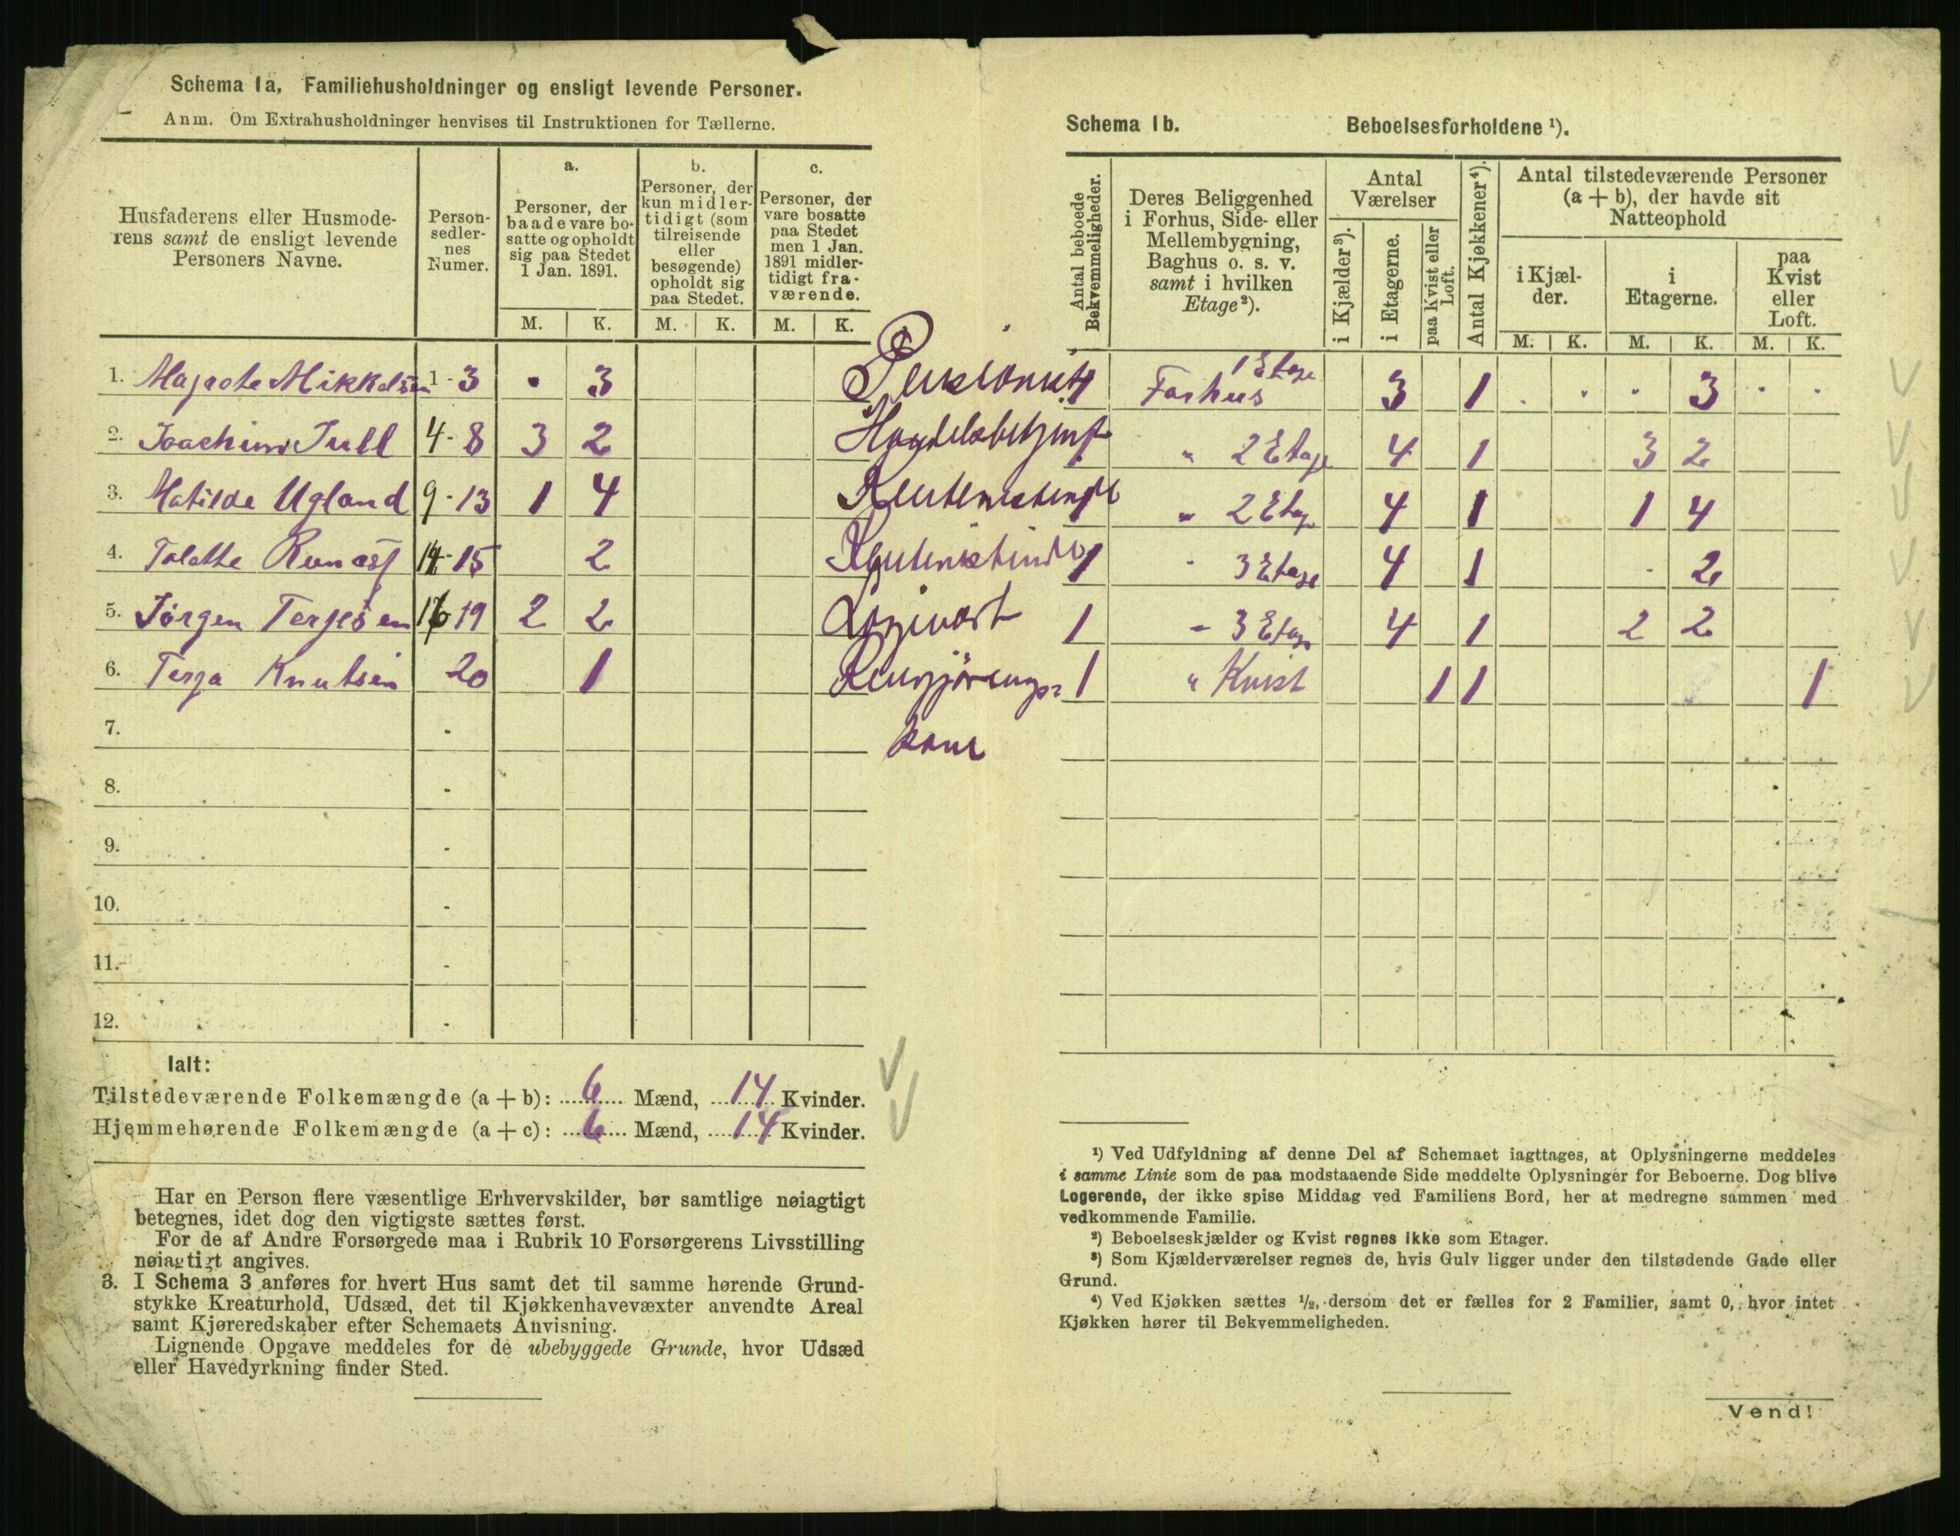 Schema 1a. Familiehusholdninger og ensligt levende Personer.
Anm. Om Extrahusholdninger henvises til Instruktionen for Tællerne.
Husfaderens eller Husmoderens samt de ensligt levende Personers Navne.
Personsedlernes Numer.
a.
Personer, der baade vare bosatte og opholdt sig paa Stedet 1 Jan. 1891.
b.
Personer, der kun midlertidigt (som tilreisende eller besøgende) opholdt sig paa Stedet.
c.
Personer, der vare bosatte paa Stedet men 1 Jan. 1891 midlertidigt fraværende.
M. K. M. K. M. K.
1. Magrete Mikkelsen 1-3 3 Pensionist
2. Joachim Juell 4-8 3 2
3. Matilde Ugland 9-13 1 4 Rentenistinde
4. Talette 14-15 2 Rentenistinde
5. Jørgen Terjesen 16-19 2 2 Logivært
6. Terja Knutsen 20 1 Rengjørings-
7. kone
8.
9.
10.
11.
12.
Ialt:
Tilstedeværende Folkemængde (a + b): 6 Mænd, 14 Kvinder.
Hjemmehørende Folkemængde (a + c): 6 Mænd, 14 Kvinder.
Har en Person flere væsentlige Erhvervskilder, bør samtlige nøiagtigt
betegnes, idet dog den vigtigste sættes først.
For de af Andre Forsørgede maa i Rubrik 10 Forsørgerens Livsstilling
nøiagtigt angives.
3. I Schema 3 anføres for hvert Hus samt det til samme hørende Grund-
stykke Kreaturhold, Udsæd, det til Kjøkkenhavevæxter anvendte Areal
samt Kjøreredskaber efter Schemaets Anvisning.
Lignende Opgave meddeles for de ubebyggede Grunde, hvor Udsæd
eller Havedyrkning finder Sted.
Schema 1b. Beboelsesforholdene ¹).
Antal beboede Bekvemmeligheder.
Deres Beliggenhed i Forhus, Side- eller Mellembygning, Baghus o. s. v. samt i hvilken Etage ²).
Antal Værelser
i Kjælder ³).
i Etagerne.
paa Kvist eller Loft.
Antal Kjøkkener ⁴).
Antal tilstedeværende Personer (a + b), der havde sit Natteophold
i Kjælder.
i Etagerne.
paa Kvist eller Loft.
M. K. M. K. M. K.
1 Forhus 1 Etage 3 1 3
" 2 Etage 4 1 3 2
1 " 2 Etage 4 1 1 4
1 " 3 Etage 4 1 2
1 " 3 Etage 4 1 2 2
1 " Kvist 1 1 1
¹) Ved Udfyldning af denne Del af Schemaet iagttages, at Oplysningerne meddeles
i samme Linie som de paa modstaaende Side meddelte Oplysninger for Beboerne. Dog blive
Logerende, der ikke spise Middag ved Familiens Bord, her at medregne sammen med
vedkommende Familie.
²) Beboelseskjælder og Kvist regnes ikke som Etager.
³) Som Kjælderværelser regnes de, hvis Gulv ligger under den tilstødende Gade eller
Grund.
⁴) Ved Kjøkken sættes ½, dersom det er fælles for 2 Familier, samt 0, hvor intet
Kjøkken hører til Bekvemmeligheden.
Vend!